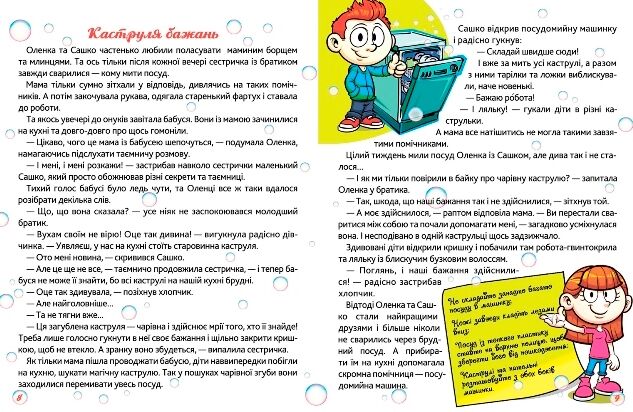 Каструля бажань
Оленка та Сашко частенько любили поласувати маминим борщем
та млинцями. Та ось тільки після кожної вечері сестричка із братиком
завжди сварилися — кому мити посуд.
Мама тільки сумно зітхали у відповідь, дивлячись на таких поміч-
ників. А потім закочувала рукава, одягала старенький фартух і ставала
до роботи.
Та якось увечері до онуків завітала бабуся. Вони із мамою зачинилися
на кухні та довго-довго про щось гомоніли.
— Цікаво, чого це мама із бабусею шепочуться, — подумала Оленка,
намагаючись підслухати таємничу розмову.
— І мені, і мені скажи, — застрибав навколо сестрички маленький
Сашко, який просто обожнював різні секрети та таємниці.
Тихий голос бабусі було ледь чути, та Оленці все ж таки вдалося
розібрати декілька слів.
— Що, що вона сказала? — усе ніяк не заспокоювався молодший
братик.
— Вухам своїм не вірю! Оце так дивина! — вигукнула радісно дів-
чинка. — Уявляєш, у нас на кухні стоїть старовинна каструля.
— Ото мені новина, — скривився Сашко.
— Але це ще не все, — таємничо продовжила сестричка, — і тепер ба-
буся не може її знайти, бо всі каструлі на нашій кухні брудні.
— Оце так здивувала, — позіхнув хлопчик.
— Але найголовніше...
— Та не тягни вже...
— Ця загублена каструля — чарівна і здійснює мрії того, хто її знайде!
Треба лише голосно гукнути в неї своє бажання і щільно закрити криш-
кою, щоб не втекло. А зранку воно збудеться, — випалила сестричка.
Як тільки мама пішла проводжати бабусю, діти навипередки побігли
на кухню, шукати магічну каструлю. Так у пошуках чарівної згуби вони
заходилися перемивати увесь посуд.
8
Сашко відкрив посудомийну машинку
і радісно гукнув:
— Складай швидше сюди!
І вже за мить усі каструлі, а разом
з ними тарілки та ложки виблискува-
ли, наче новенькі.
— Бажаю робота!
— І ляльку! — гукали діти в різні ка-
струльки.
А мама все натішитись не могла такими завзя-
тими помічниками.
Цілий тиждень мили посуд Оленка із Сашком, але дива так і не ста-
лося...
— І як ми тільки повірили в байку про чарівну каструлю? — запитала
Оленка у братика.
— Так, шкода, що наші бажання так і не здійснилися, — зітхнув той.
— А моє здійснилося, — раптом відповіла мама. — Ви перестали сва-
ритися між собою та почали допомагати мені, — загадково усміхнулася
вона. І несподівано в одній каструльці щось задзижчало.
Здивовані діти відкрили кришку і побачили там робота-гвинтокрила
та ляльку із блискучим бузковим волоссям.
— Поглянь, і наші бажання здійснили-
ся! — радісно застрибав
хлопчик.
Відтоді Оленка та Саш-
ко стали найкращими
друзями і більше ніколи
не сварились через бруд-
ний посуд. А прибира-
ти їм на кухні допомагала
скромна помічниця — посу-
домийна машина.
Не складайте занадто багато
посуду в машинку.
Ножі завжди кладіть лезами
вниз.
Посуд із тонкого пластику
ставте на верхню полицю, щоб
зберегти його від пошкодження.
Каструлі та пательні
розташовуйте з обох боків
машинки.
9